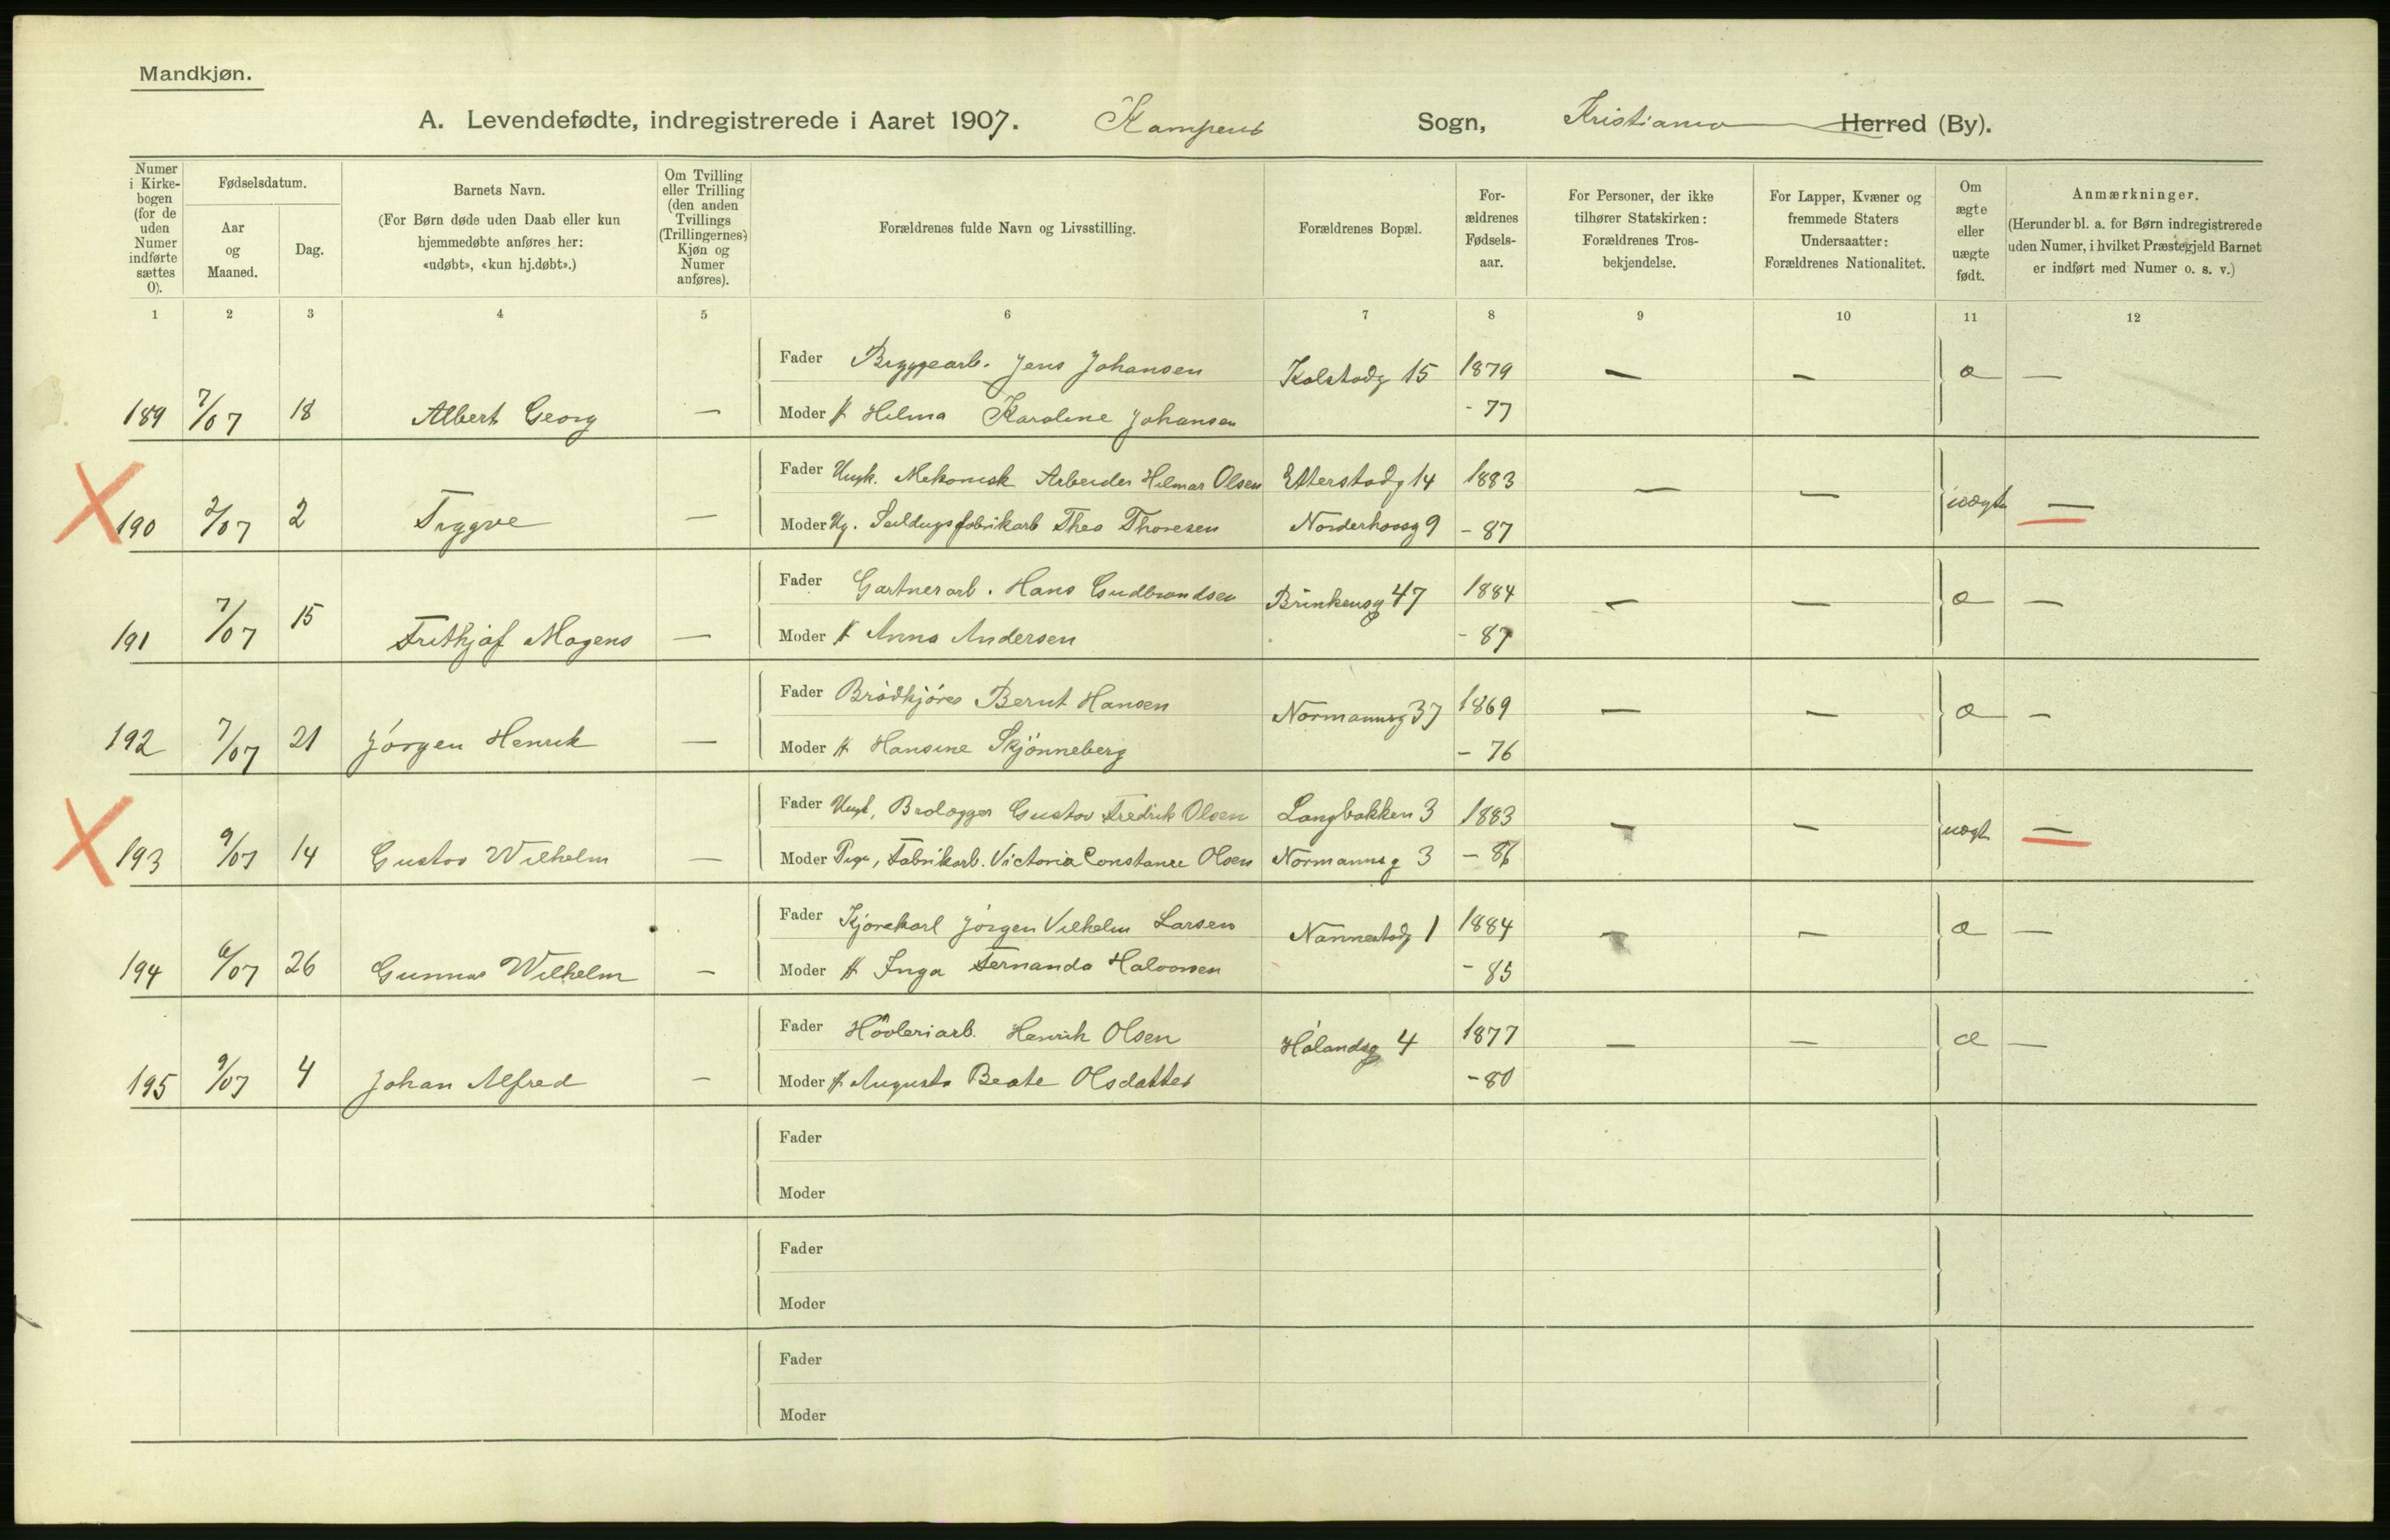 Mandkjøn.
A. Levendefødte, indregistrerede i Aaret 1907. Kampens Sogn, Kristiania Herred (By).
Numer i Kirkebogen (for de uden Numer indførte sættes 0).
Fødselsdatum.
Aar og Maaned.
Dag.
Barnets Navn.
(For Børn døde uden Daab eller kun hjemmedøbte anføres her: «udøbt», «kun hj.døbt».)
Om Tvilling eller Trilling (den anden Tvillings (Trillingernes) Kjøn og Numer anføres).
Forældrenes fulde Navn og Livsstilling.
Forældrenes Bopæl.
Forældrenes Fødselsaar.
For Personer, der ikke tilhører Statskirken: Forældrenes Trosbekjendelse.
For Lapper, Kvæner og fremmede Staters Undersaatter: Forældrenes Nationalitet.
Om ægte eller uægte født.
Anmærkninger.
(Herunder bl. a. for Børn indregistrerede uden Numer, i hvilket Præstegjeld Barnet er indført med Numer o. s. v.)
1 2 3 4 5 6 7 8 9 10 11 12
Fader Bryggearb. Jens Johansen Kolstadg 15 1879 — — æ —
189 7/07 18 Albert Georg — Moder H Hilma Karoline Johansen - 77
Fader Ungk. Mekanisk Arbeider Hilmar Olsen Etterstadg 14 1883 — — uægte —
190 2/07 2 Tryggve — Moder Ug. Seildugsfabrikarb Thea Thoresen Norderhovsg 9 - 87
Fader Gartnerarb. Hans Gudbrandsen Brinkensg 47 1884 — — æ —
191 7/07 15 Frithjof Mogens — Moder H Anna Andersen - 87
Fader Brödkjörer Bernt Hansen Normannsg 37 1869 — — æ —
192 7/07 21 Jörgen Henrik — Moder H Hansine Skjönneberg - 76
Fader Ungk, Brolægger Gustav Fredrik Olsen Langbakken 3 1883 — — uægt —
193 9/07 14 Gustav Wilhelm — Moder Pige, Fabrikarb. Victoria Constance Olsen Normannsg 3 - 86
Fader Kjörekarl Jörgen Vilhelm Larsen Nannestadg 1 1884 — — æ —
194 6/07 26 Gunnar Wilhelm — Moder H Inga Fernanda Halvorsen - 85
Fader Hövleriarb. Henrik Olsen Hölandsg 4 1877 — — æ —
195 9/07 4 Johan Alfred — Moder H Augusta Beate Olsdatter - 80
Fader
Moder
Fader
Moder
Fader
Moder